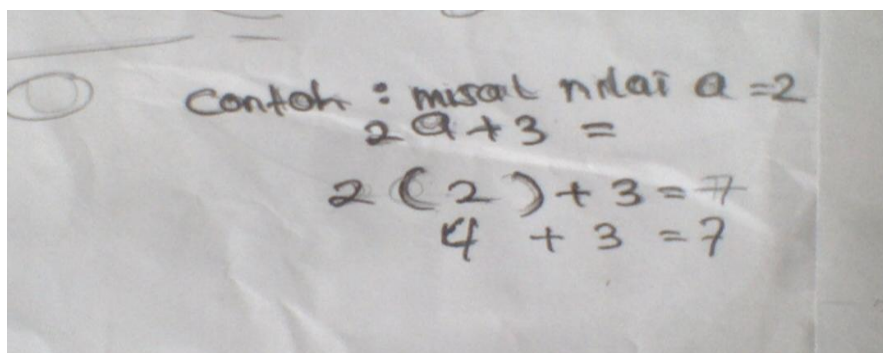 Contoh : misal nilai a = 2
2a + 3 =
2 ( 2 ) + 3 = 7
4 + 3 = 7